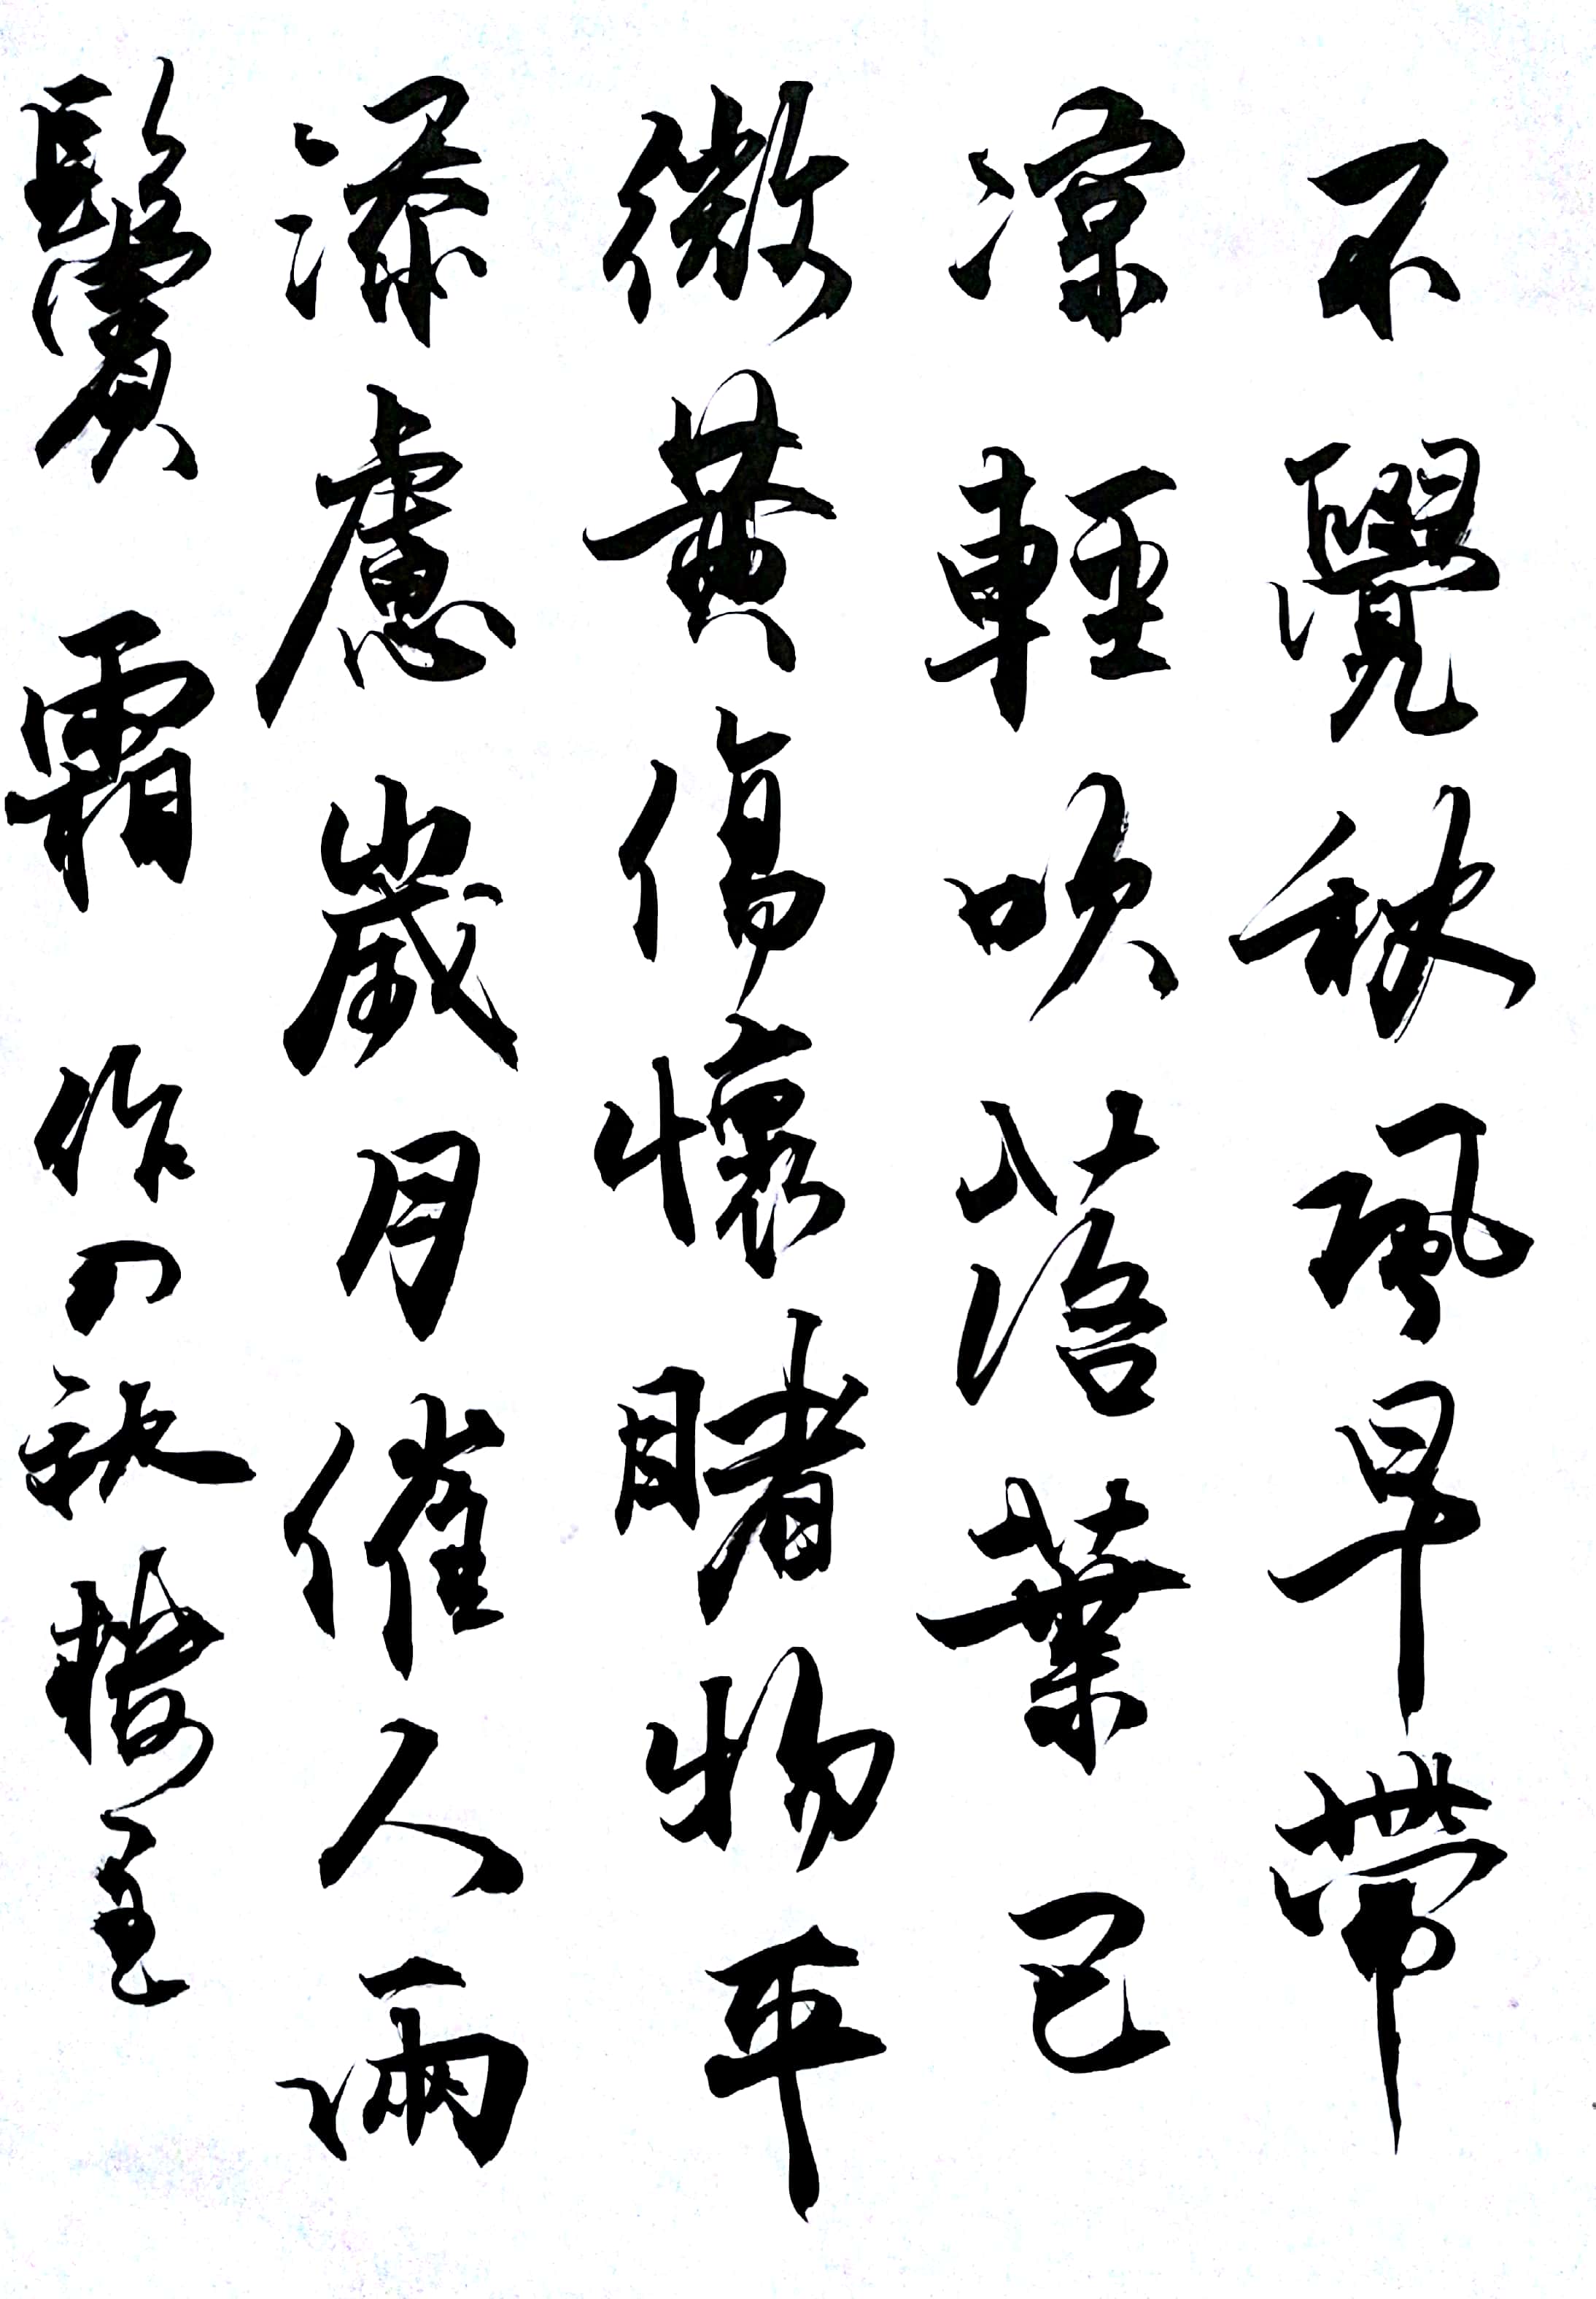 不覺秋風早帶
涼輕吹落葉已
微黃傷懷睹物平
添慮歲月催人兩
鬢霜 作